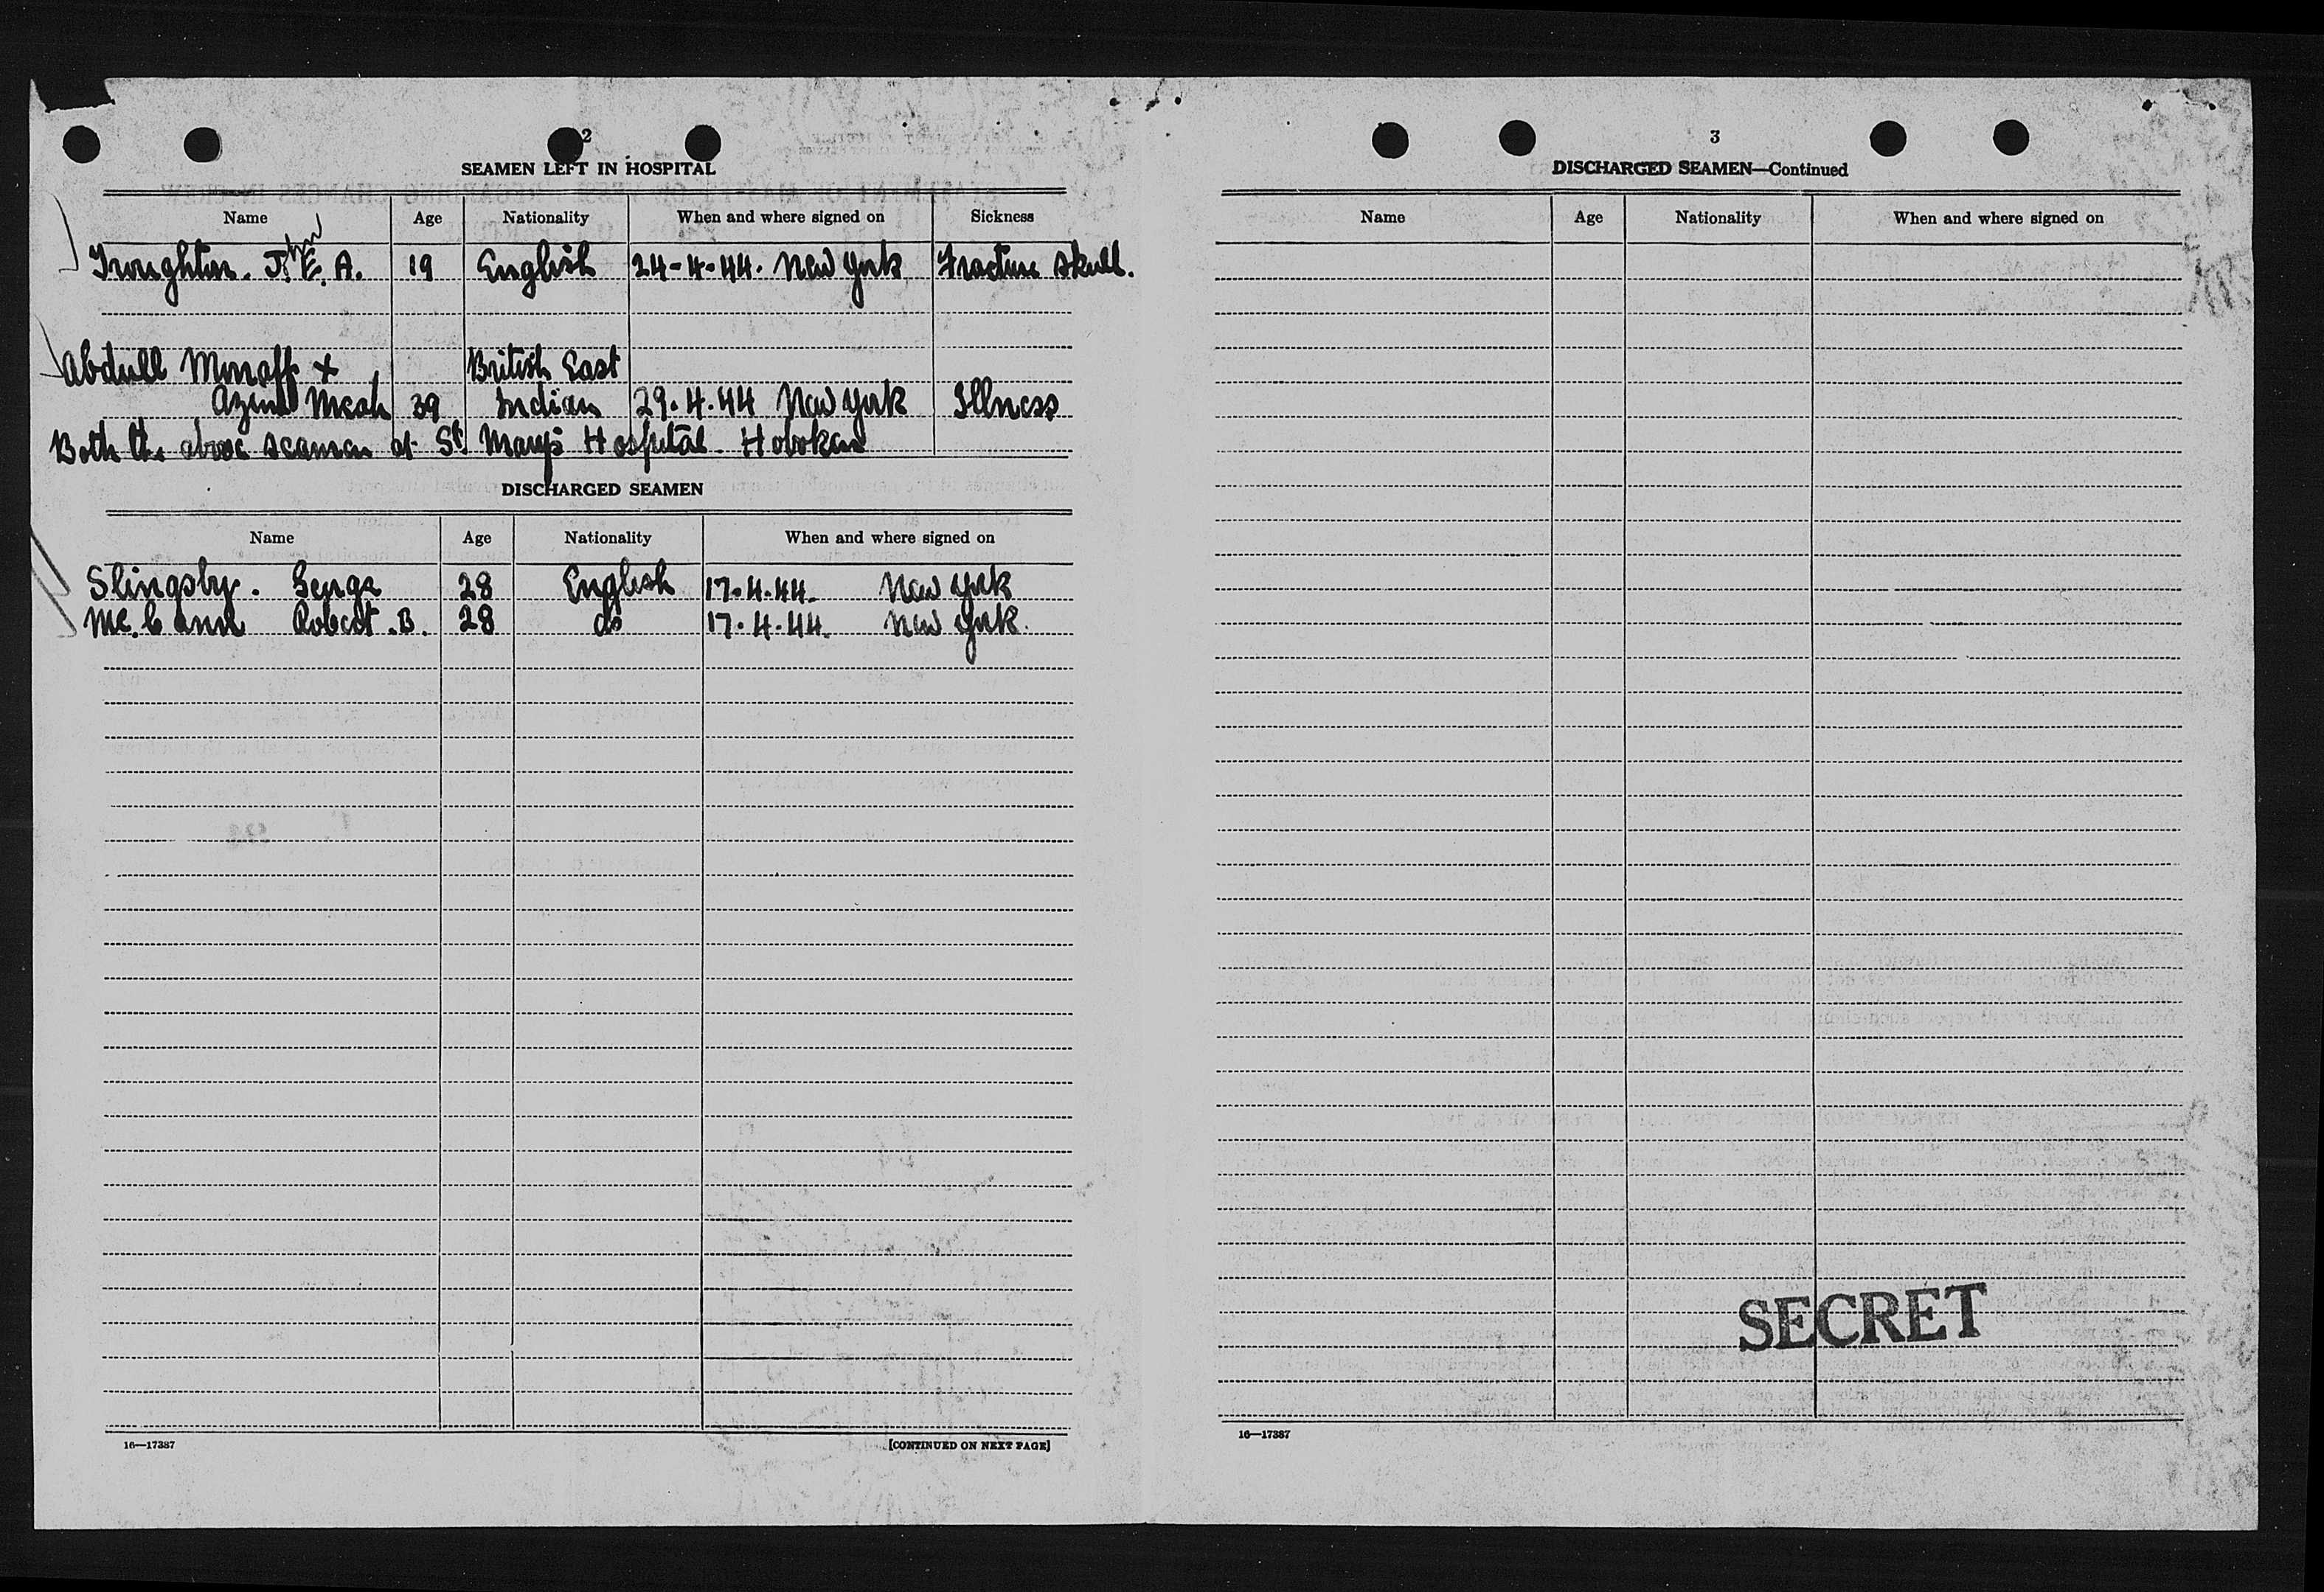 2
SEAMEN LEFT IN HOSPITAL
Name Age Nationality When and where signed on Sickness
John
Troughton. J. E. A. 19 English 24-4-44. New York Fracture Skull.
Abdull Monaff x British East
Azim Meah 39 Indian 29.4.44 New York Illness
Both the above seamen at St. Mary's Hospital. Hoboken
DISCHARGED SEAMEN
Name Age Nationality When and where signed on
Slingsby. George 28 English 17.4.44. New York
Mc. Cann Robert .B. 28 do 17.4.44. New York.
16—17387 [CONTINUED ON NEXT PAGE]
3
DISCHARGED SEAMEN—Continued
Name Age Nationality When and where signed on
SECRET
16—17387